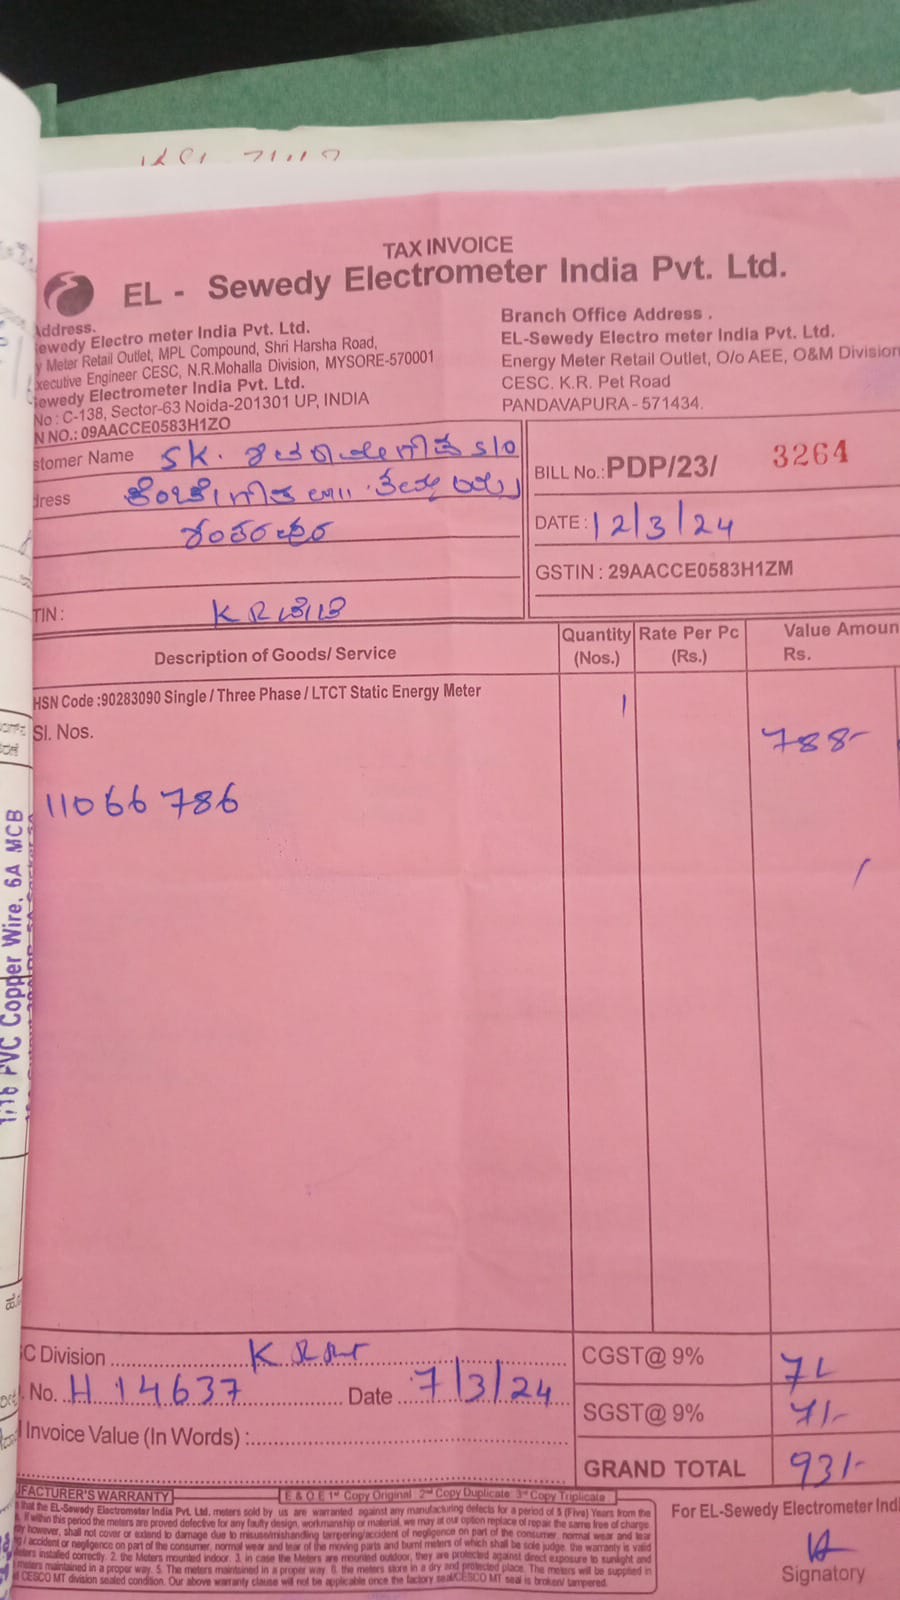 TAX INVOICE
EL - Sewedy Electrometer India Pvt. Ltd.
Address.
Sewedy Electro meter India Pvt. Ltd.
y Meter Retail Outlet, MPL Compound, Shri Harsha Road,
xecutive Engineer CESC, N.R.Mohalla Division, MYSORE-570001
Sewedy Electrometer India Pvt. Ltd.
No : C-138, Sector-63 Noida-201301 UP, INDIA
N NO.: 09AACCE0583H1ZO
Branch Office Address .
EL-Sewedy Electro meter India Pvt. Ltd.
Energy Meter Retail Outlet, O/o AEE, O&M Division
CESC. K.R. Pet Road
PANDAVAPURA - 571434.
stomer Name SK. S/O
dress
TIN :
BILL No.: PDP/23/ 3264
DATE : 12/3/24
GSTIN : 29AACCE0583H1ZM
Description of Goods/ Service
Quantity (Nos.)
Rate Per Pc (Rs.)
Value Amoun Rs.
HSN Code :90283090 Single / Three Phase / LTCT Static Energy Meter
1
788-
Sl. Nos.
11066786
1/18 PVC Copper Wire, 6A MCB
C Division
. No. H 14637 Date 7/3/24
Invoice Value (In Words) :
CGST@ 9% 71
SGST@ 9% 71/-
GRAND TOTAL 931/-
FACTURER'S WARRANTY
E & O E 1st Copy Original 2nd Copy Duplicate 3rd Copy Triplicate
that the EL-Sewedy Electrometer India Pvt. Ltd. meters sold by us are warranted against any manufacturing defects for a period of 5 (Five) Years from the
. If within this period the meters are proved defective for any faulty design, workmanship or material, we may at our option replace of repair the same free of charge.
y however, shall not cover or extend to damage due to misuse/mishandling tampering/accident of negligence on part of the consumer, normal wear and tear
/ accident or negligence on part of the consumer, normal wear and tear of the moving parts and burnt meters of which shall be sole judge. the warranty is valid
eters installed correctly. 2. the Meters mounted indoor. 3. in case the Meters are mounted outdoor, they are protected against direct exposure to sunlight and
meters maintained in a proper way. 5. The meters maintained in a proper way. 6. the meters store in a dry and protected place. The meters will be supplied in
CESCO MT division sealed condition. Our above warranty clause will not be applicable once the factory seal/CESCO MT seal is broken/ tampered.
For EL-Sewedy Electrometer Indi
Signatory